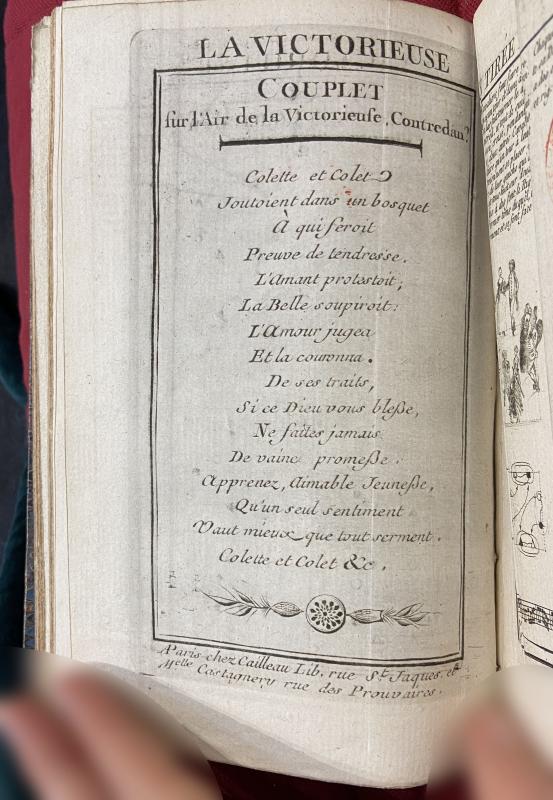 LA VICTORIEUSE
COUPLET
sur l'Air de la Victorieuse, Contredan?
Colette et Colet
Joutoient dans un bosquet
À qui feroit
Preuve de tendresse.
L'Amant protestoit;
La Belle soupiroit:
L'Amour jugea
Et la couronna.
De ses traits,
Si ce Dieu vous bleße,
Ne faites jamais
De vaine promeße.
Apprenez, Aimable Jeuneße,
Qu'un seul sentiment
Vaut mieux que tout serment.
Colette et Colet &c.
A Paris chez Cailleau Lib. rue St. Jaques, et
Melle Castagnery rue des Prouvaires.
TIRÉE